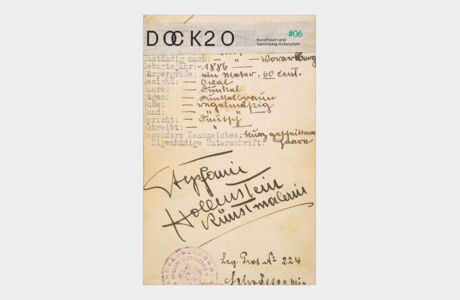 DOCK20
#06
Kunstraum und
Sammlung Hollenstein
Zuständig nach: — " — Vorarlberg
Geburtsjahr: — 1886 —
Körpergröße: — ein Meter, 60 cent.
Gesicht: — Oval
Haare: — dunkel
Augen: — dunkelbraun
Mund: — regelmäßig
— " —
Spricht: — deutsch
Schreibt: — "
Besondere Kennzeichen: kurz geschnittene
Haare
Eigenhändige Unterschrift:
Stephanie
Hollenstein
Kunstmalerin
Leg. Pros. No 224